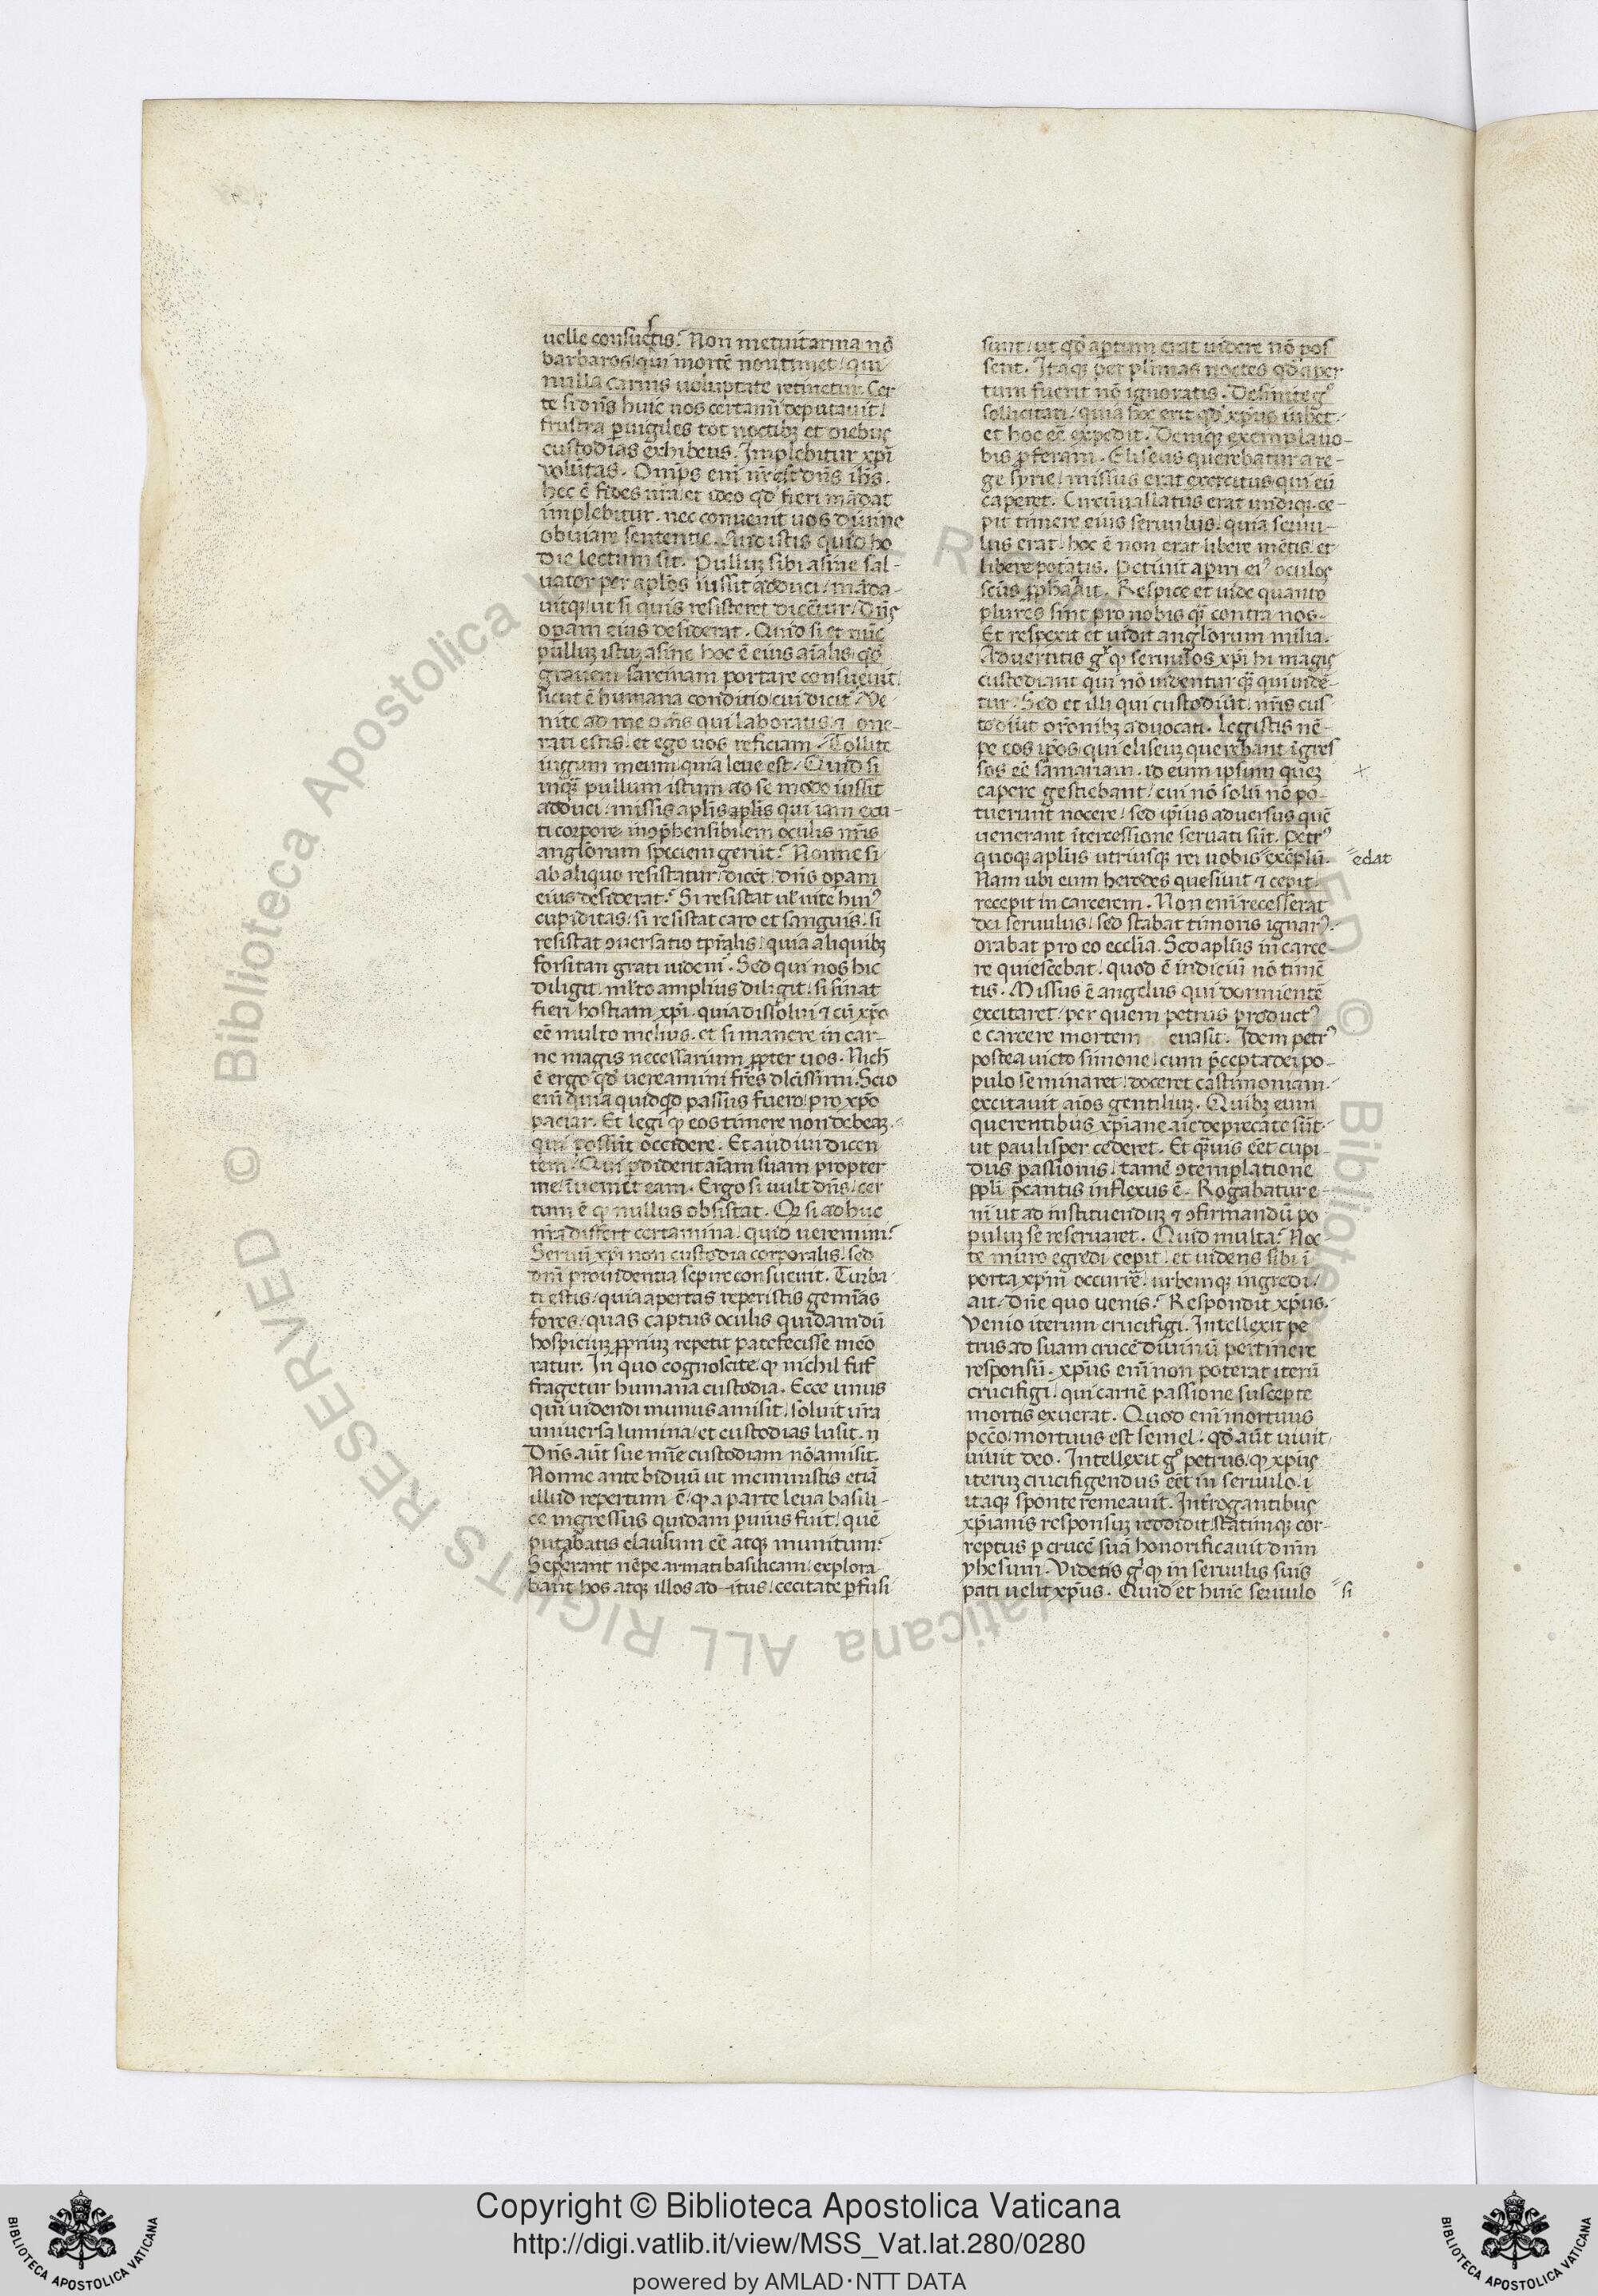 uelle consuetis. Non metuit arma nō
barbaros qui mortē non timet / qui
nulla carnis uoluptate retinetur. Cer
te si dn̄s huic nos certamī deputauit /
frustra ꝑuigiles tot noctibꝫ et diebus
custodias exhibetis. Implebitur xp̄i
uolūtas. Om̄ps enī nr̄ est dn̄s ih̄s.
hec ē fides nr̄a / et ideo qd̓ fieri mādat
implebitur. nec conuenit uos diuine
obuiare sententie. Audistis quid ho
die lectum sit. Pulluꝫ sibi asine sal-
uator per apl̄os iussit adduci / māda-
uitqꝫ ut si quis resisteret dicētur / Dn̄s
oꝑam eius desiderat. Quid si et nūc
pulluꝫ istuꝫ asine hoc ē eius aīalis qd̓
grauem sarcinam portare consueuit
sicut ē humana conditio cui dicit᷑. Ve-
nite ad me om̄s qui laboratis ⁊ one-
rati estis / et ego uos reficiam. Tollite
iugum meum quia leue est. Quid si
inqͣꝫ pullum istum ad se modo iussit
adduci / missis apl̄is apl̄is qui iam exu-
ti corpore inꝯp̄hensibilem oculis nr̄is
anglorum speciem gerūt. Nonne si
ab aliquo resistatur / dicēt / dn̄s oꝑam
eius desiderat. Si resistat ul̓ uite huiꝰ
cupiditas / si resistat caro et sanguis / si
resistat ꝯuersatio tp̄ralis / quia aliquibꝫ
forsitan grati uidem᷑. Sed qui nos hic
diligit / ml̓to amplius diligit / si sinat
fieri hostiam xp̄i. quia dissolui ⁊ cū xp̄o
eē multo melius. et si manere in car-
ne magis necessarium ꝓpter uos. Nich̓
ē ergo qd̓ uereamini fr̄es dl̓cissimi. Scio
enī quia quidqd̓ passus fuero / pro xp̄o
paciar. Et legi ꝙ eos timere non debeaꝫ.
qui possūt occidere. Et audiui dicen
tem / Qui ꝑdiderit aīam suam propter
me / īueniet eam. Ergo si uult dn̄s / cer
tum ē ꝙ nullus obsistat. Qꝫ si adhuc
nr̄a differt certamina / quid ueremur.
Seruū xp̄i non custodia corporalis / sed
dn̄i prouidentia sepire consueuit. Turba
ti estis / quia apertas reperistis gemīas
fores / quas captus oculis quidam dū
hospiciuꝫ ꝓpriuꝫ repetit patefecisse meo
ratur. In quo cognoscite ꝙ nichil suf
fragetur humana custodia. Ecce unus
qui uidendi munus amisit / soluit ur̄a
uniuersa lumina / et custodias lusit. n
Dn̄s aūt sue mīe custodiam nō amisit.
Nonne ante biduū ut meministis etiā
illud repertum ē / ꝙ a parte leua basili-
ce ingressus quidam ꝑuius fuit / quē
putabatis clausum eē atqꝫ munitum.
Sepserant nēpe armati basilicam / explora-
bant hos atqꝫ illos aditus / cecitate ꝑfusi
sunt / ut qd̓ aꝑtum erat uidere nō pos
sent. Itaqꝫ per pl̓imas noctes qd̓ aper
tum fuerit nō ignoratis. Desinite gͦ
sollicitari / quia hoc erit qd̓ xp̄us iubet.
et hoc eē expedit. Deniqꝫ exempla uo-
bis ꝓferam. Eliseus querebatur a re-
ge syrie / missus erat exercitus qui eū
caperet. Circūuallatus erat undiqꝫ. ce-
pit timere eius seruulus / quia seruu-
lus erat / hoc ē non erat libere mētis et
libere potātis. Petiuit aperiri eiꝰ oculos
scūs ꝓph̄a / ait. Respice et uide quanto
plures sint pro nobis qͣꝫ contra nos.
Et respexit et uidit anglorum milia.
Aduertitis gͦ ꝙ seruulos xp̄i hi magis
custodiant qui nō uidentur qͣꝫ qui uidē-
tur. Sed et illi qui custodiūt / nr̄is cus-
todiūt orōnibꝫ aduocati. Legistis nē-
pe eos ip̄os qui eliseuꝫ querebant īgres
sos eē samariam. id eum ipsum queꝫ
capere gestiebant / cui nō solū nō po-
tuerunt nocere / sed ip̄ius aduersus quē
uenerant ītercessione seruati sūt. Petrꝰ
quoqꝫ apl̄us utriusqꝫ rei uobis exēplū. edat
Nam ubi eum herodes quesiuit ⁊ cepit /
recepit in carcerem. Non enī recesserat
dei seruulus / sed stabat timoris ignarꝰ.
orabat pro eo eccl̄ia. Sed apl̄us in carce-
re quiescebat / quod ē indiciū nō timē
tis. Missus ē angelus qui dormientē
excitaret / per quem petrus productꝰ
e carcere mortem euasit. Idem petrꝰ
postea uicto simone / cum p̄cepta dei po-
pulo seminaret / doceret castimoniam.
excitauit aīos gentiliuꝫ. Quibꝫ eum
querentibus xp̄iane aīe deprecate sūt.
ut paulisper cederet. Et qͣꝫuis eēt cupi
dus passionis / tamē ꝯtemplatione
ppl̓i p̄cantis inflexus ē. Rogabatur e-
ni ut ad instituenduꝫ ⁊ ꝯfirmandū po
puluꝫ se reseruaret. Quid multa. Noc-
te muro egredi cepit / et uidens sibi ī
porta xp̄m occurrē / urbemqꝫ ingredi /
ait. Dn̄e quo uenis. Respondit xp̄us.
Venio iterum crucifigi. Intellexit pe
trus ad suam crucē diuinū pertinere
responsū. xp̄us enī non poterat iterū
crucifigi / qui carnē passione suscepte
mortis exuerat. Quod enī mortuus
pcc̄o / mortuus est semel. qd̓ aūt uiuit /
uiuit deo. Intellexit gͦ petrus ꝙ xp̄us
iteruꝫ crucifigendus eēt in seruulo. i
itaqꝫ sponte remeauit. Introgantibus
xp̄ianis responsuꝫ reddidit / statimqꝫ cor-
reptus ꝑ crucē suā honorificauit dn̄m
yhesum. Videtis gͦ ꝙ in seruulis suis
pati uelit xp̄us. Quid et huic seruulo si
Copyright © Biblioteca Apostolica Vaticana
http://digi.vatlib.it/view/MSS_Vat.lat.280/0280
powered by AMLAD·NTT DATA
BIBLIOTECA APOSTOLICA VATICANA
BIBLIOTECA APOSTOLICA VATICANA
© Biblioteca Apostolica Vaticana ALL RIGHTS RESERVED